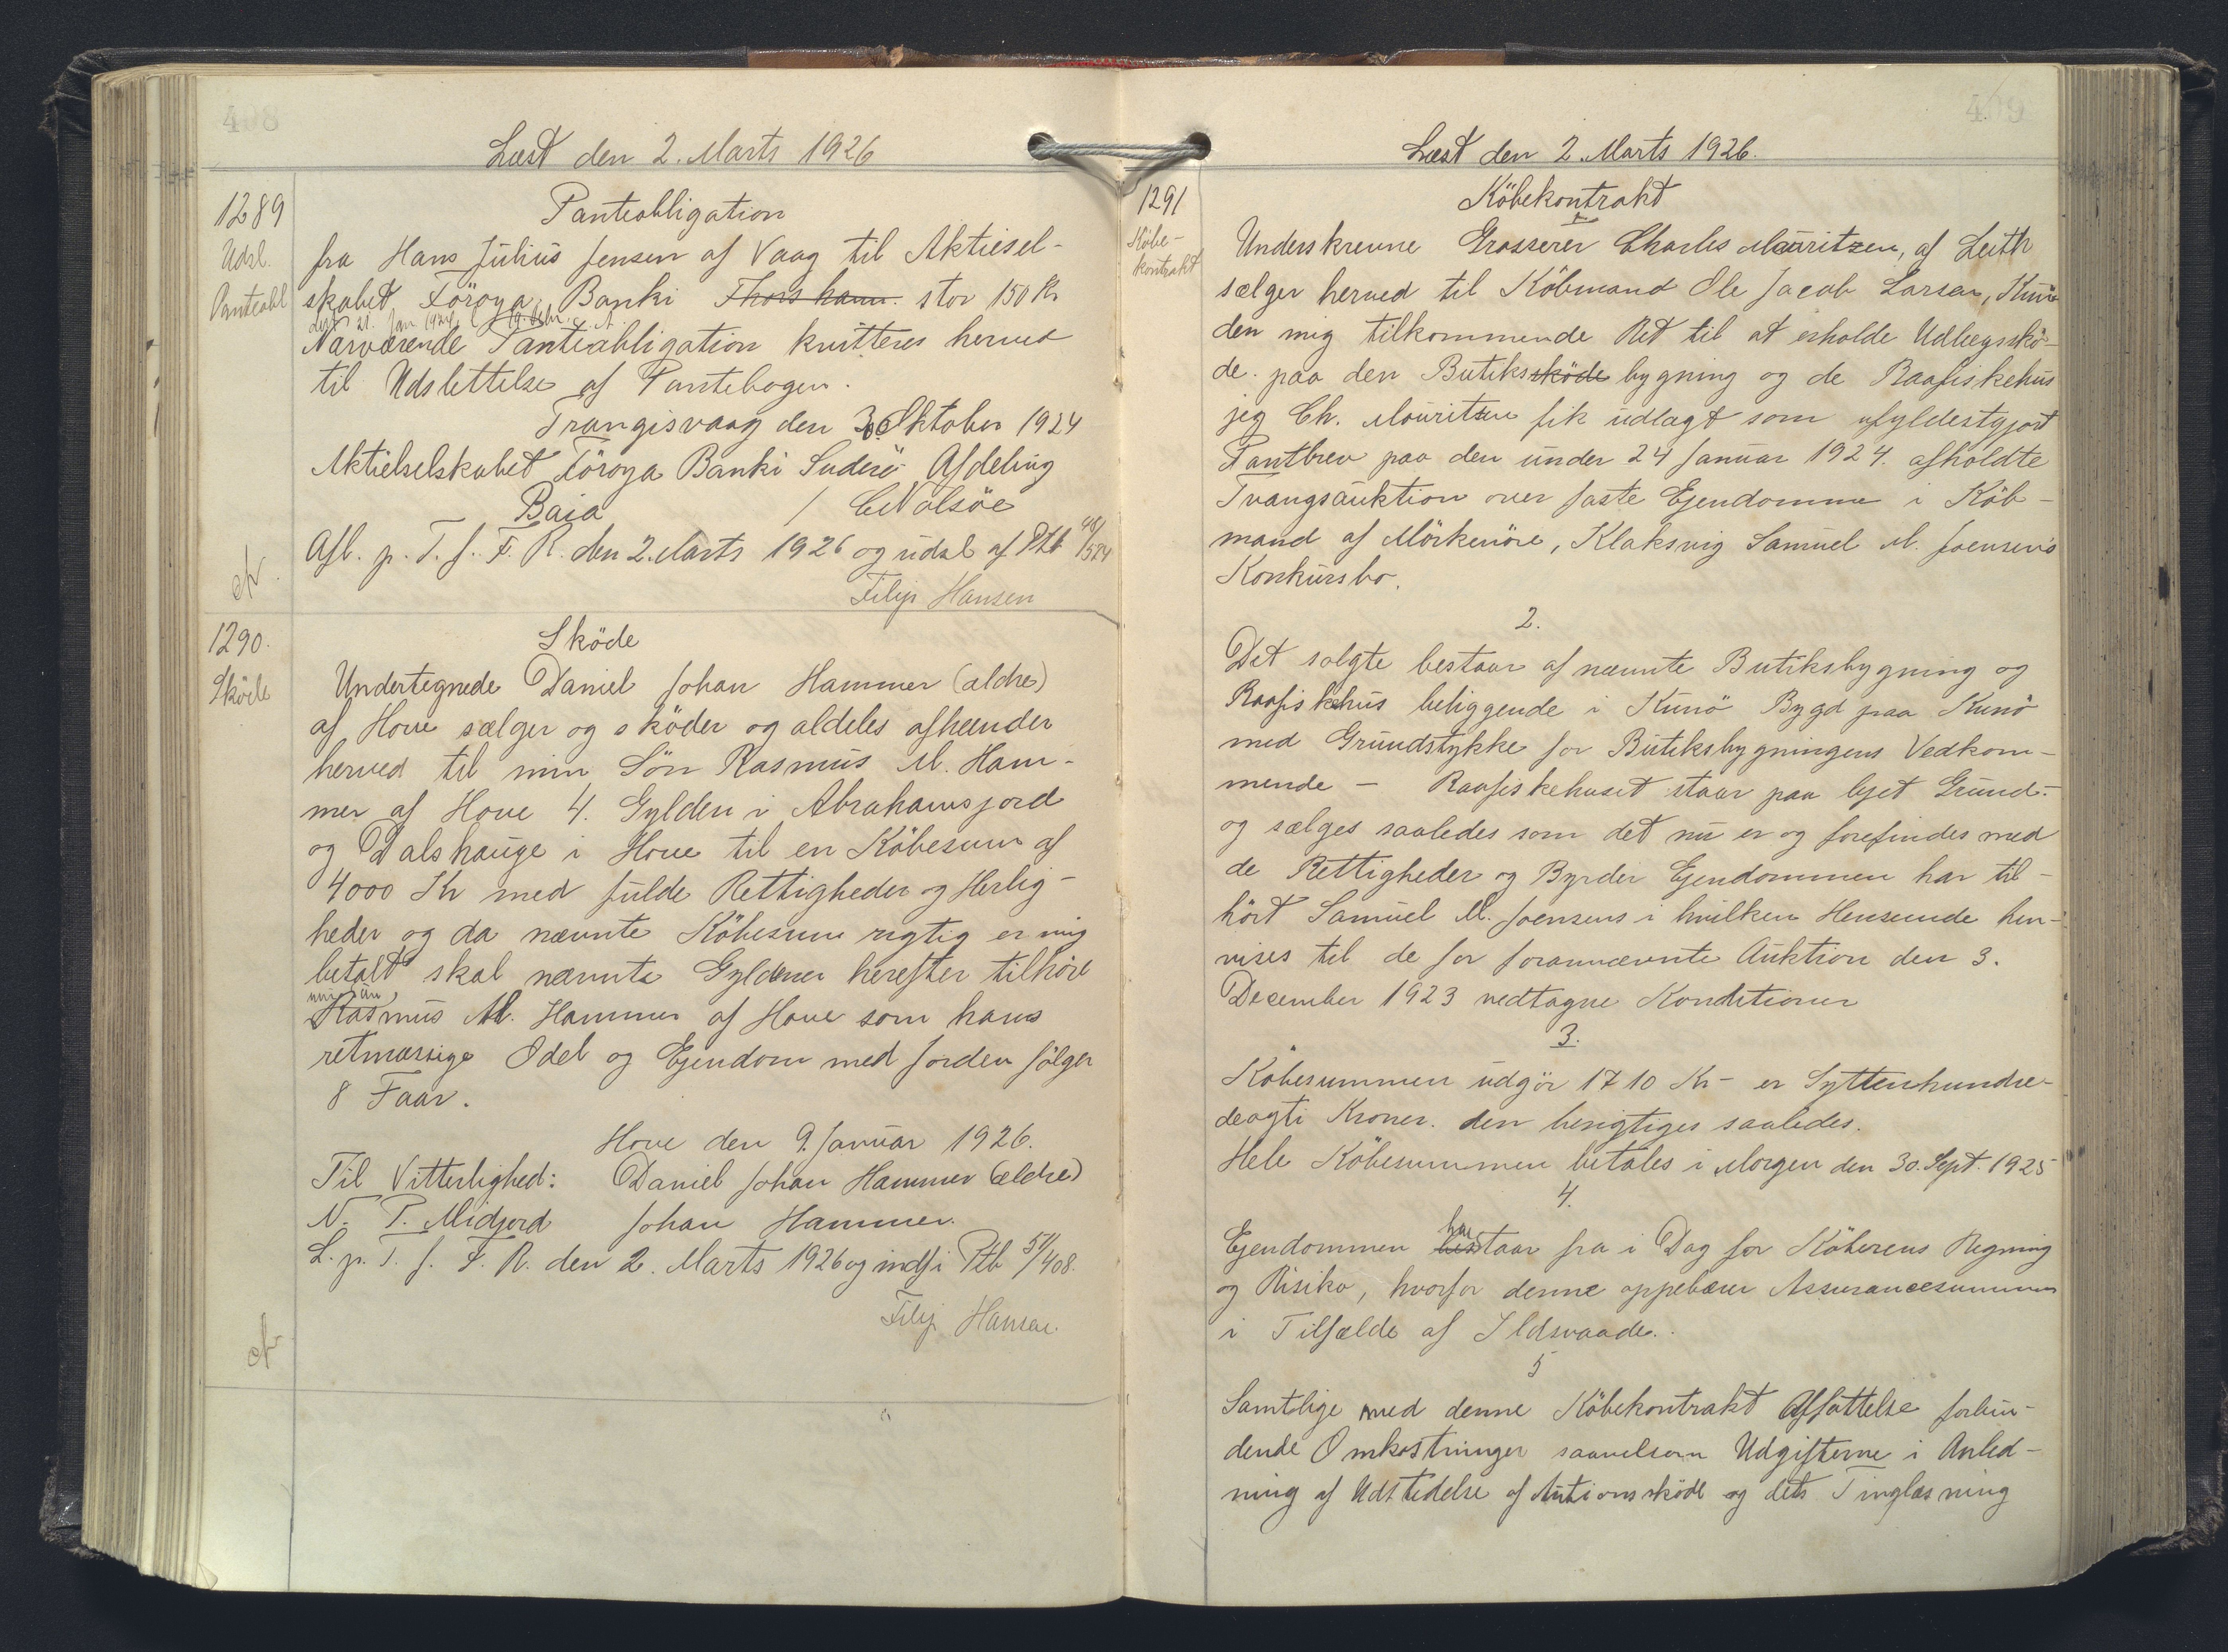 408
Læst den 2. Marts 1926
1289
Udsl.
Panteobl
Panteobligation
fra Hans Julius Jensen af Vaag til Aktiesel-
skabet Föroya Banki Thorshavn stor 150 Kr
Nærværende Panteobligation kvitteres herved
til Udslettelse af Pantebogen.
Trangisvaag den 3 Oktober 1924
Aktieselskabet Föroya Banki Suderö Afdeling
Baia / C Nolsöe
Afl. p. T. f. F. R. den 2. Marts 1926 og udsl af Ptb 48/524
Filip Hansen
1290.
Sköde
Sköde
Undertegnede Daniel Johan Hammer (ældre)
af Hove sælger og sköder og aldeles afhænder
herved til min Sön Rasmus M. Ham-
mer af Hove 4. Gylden i Abrahamsjord
og Dalshauge i Hove til en Köbesum af
4000 Kr med fulde Rettigheder og Herlig-
heder og da nævnte Köbesum rigtig er mig
betalt skal nævnte Gyldener herefter tilhöre
min Sön
Rasmus M. Hammer af Hove som hans
retmæssige Odel og Ejendom med Jorden fölger
8 Faar.
Hove den 9. Januar 1926.
Til Vitterlighed: Daniel Johan Hammer (ældre)
N. P. Midjord Johan Hammer.
L. p. T. f. F. R. den 2. Marts 1926 og indf i Ptb 51/408.
Filip Hansen.
409
Læst den 2. Marts 1926.
1291
Köbe-
kontrakt
Köbekontrakt
Underskrevne Grosserer Charles Mauritzen, af Leith
sælger herved til Köbmand Ole Jacob Larsen, Kunö
den mig tilkommende Ret til at erholde Udlægsskö-
de. paa den Butikssköde bygning og de Raafiskehus
jeg Ch. Mouritzen fik udlagt som ufyldestgjort
Pantbrev paa den under 24 Januar 1924. afholdte
Tvangsauktion over faste Ejendomme i Köb-
mand af Mörkenöre, Klaksvig Samuel M. Joensen's
Konkursbo.
2.
Det solgte bestaar af nævnte Butiksbygning og
Raafiskehus beliggende i Kunö Bygd paa Kunö
med Grundstykke for Butiksbygningens Vedkom-
mende - Raafiskehuset staar paa lejet Grund-
og sælges saaledes som det nu er og forefindes med
de Rettigheder og Byrder Ejendommen har til-
hört Samuel M. Joensens i hvilken Henseende hen-
vises til de for forannævnte Auktion den 3.
December 1923 vedtagne Konditioner
3.
Köbesummen udgör 1710 Kr - er Syttenhundre-
deogti Kroner. den berigtiges saaledes.
Hele Köbesummen betales i Morgen den 30. Sept. 1925
4.
Ejendommen henstaar fra i Dag for Köberens Regning
og Risiko, hvorfor denne oppebærer Assurancesummen
i Tilfælde af Ildsvaade.
5
Samtlige med denne Köbekontrakt Affattelse forbun-
dende Omkostninger saavelsom Udgifterne i Anled-
ning af Udstedelse af Autionsköde og dets Tinglæsning